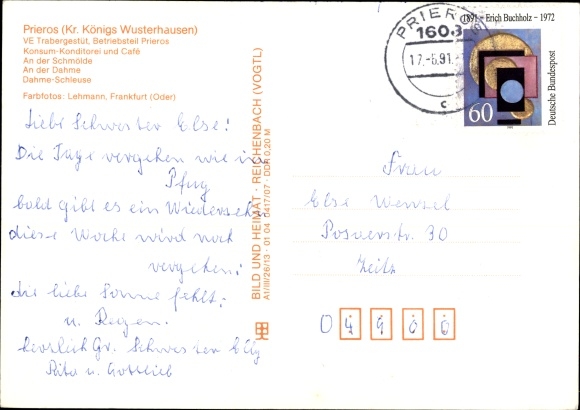 Prieros (Kr. Königs Wusterhausen)
VE Trabergestüt, Betriebsteil Prieros
Konsum-Konditorei und Café
An der Schmölde
An der Dahme
Dahme-Schleuse
Farbfotos: Lehmann, Frankfurt (Oder)
Liebe Schwester Else!
Die Tage vergehen wie im
Pflug
bald gibt es ein Wiedersehn
diese Woche wird noch
vergehen:
die liebe Sonne fehlt,
u. Regen.
herzlich Gr. Schwester
Rita u. Gottlieb
BILD UND HEIMAT · REICHENBACH (VOGTL)
A1/III/26/13 · 01 04 0417/07 · DDR 0,20 M
PRIEROS
1603
17.-6.91.
c
1891 · Erich Buchholz · 1972
60
Deutsche Bundespost
Frau
Else Wensel
Posaerstr. 30
Zeitz
O 4900